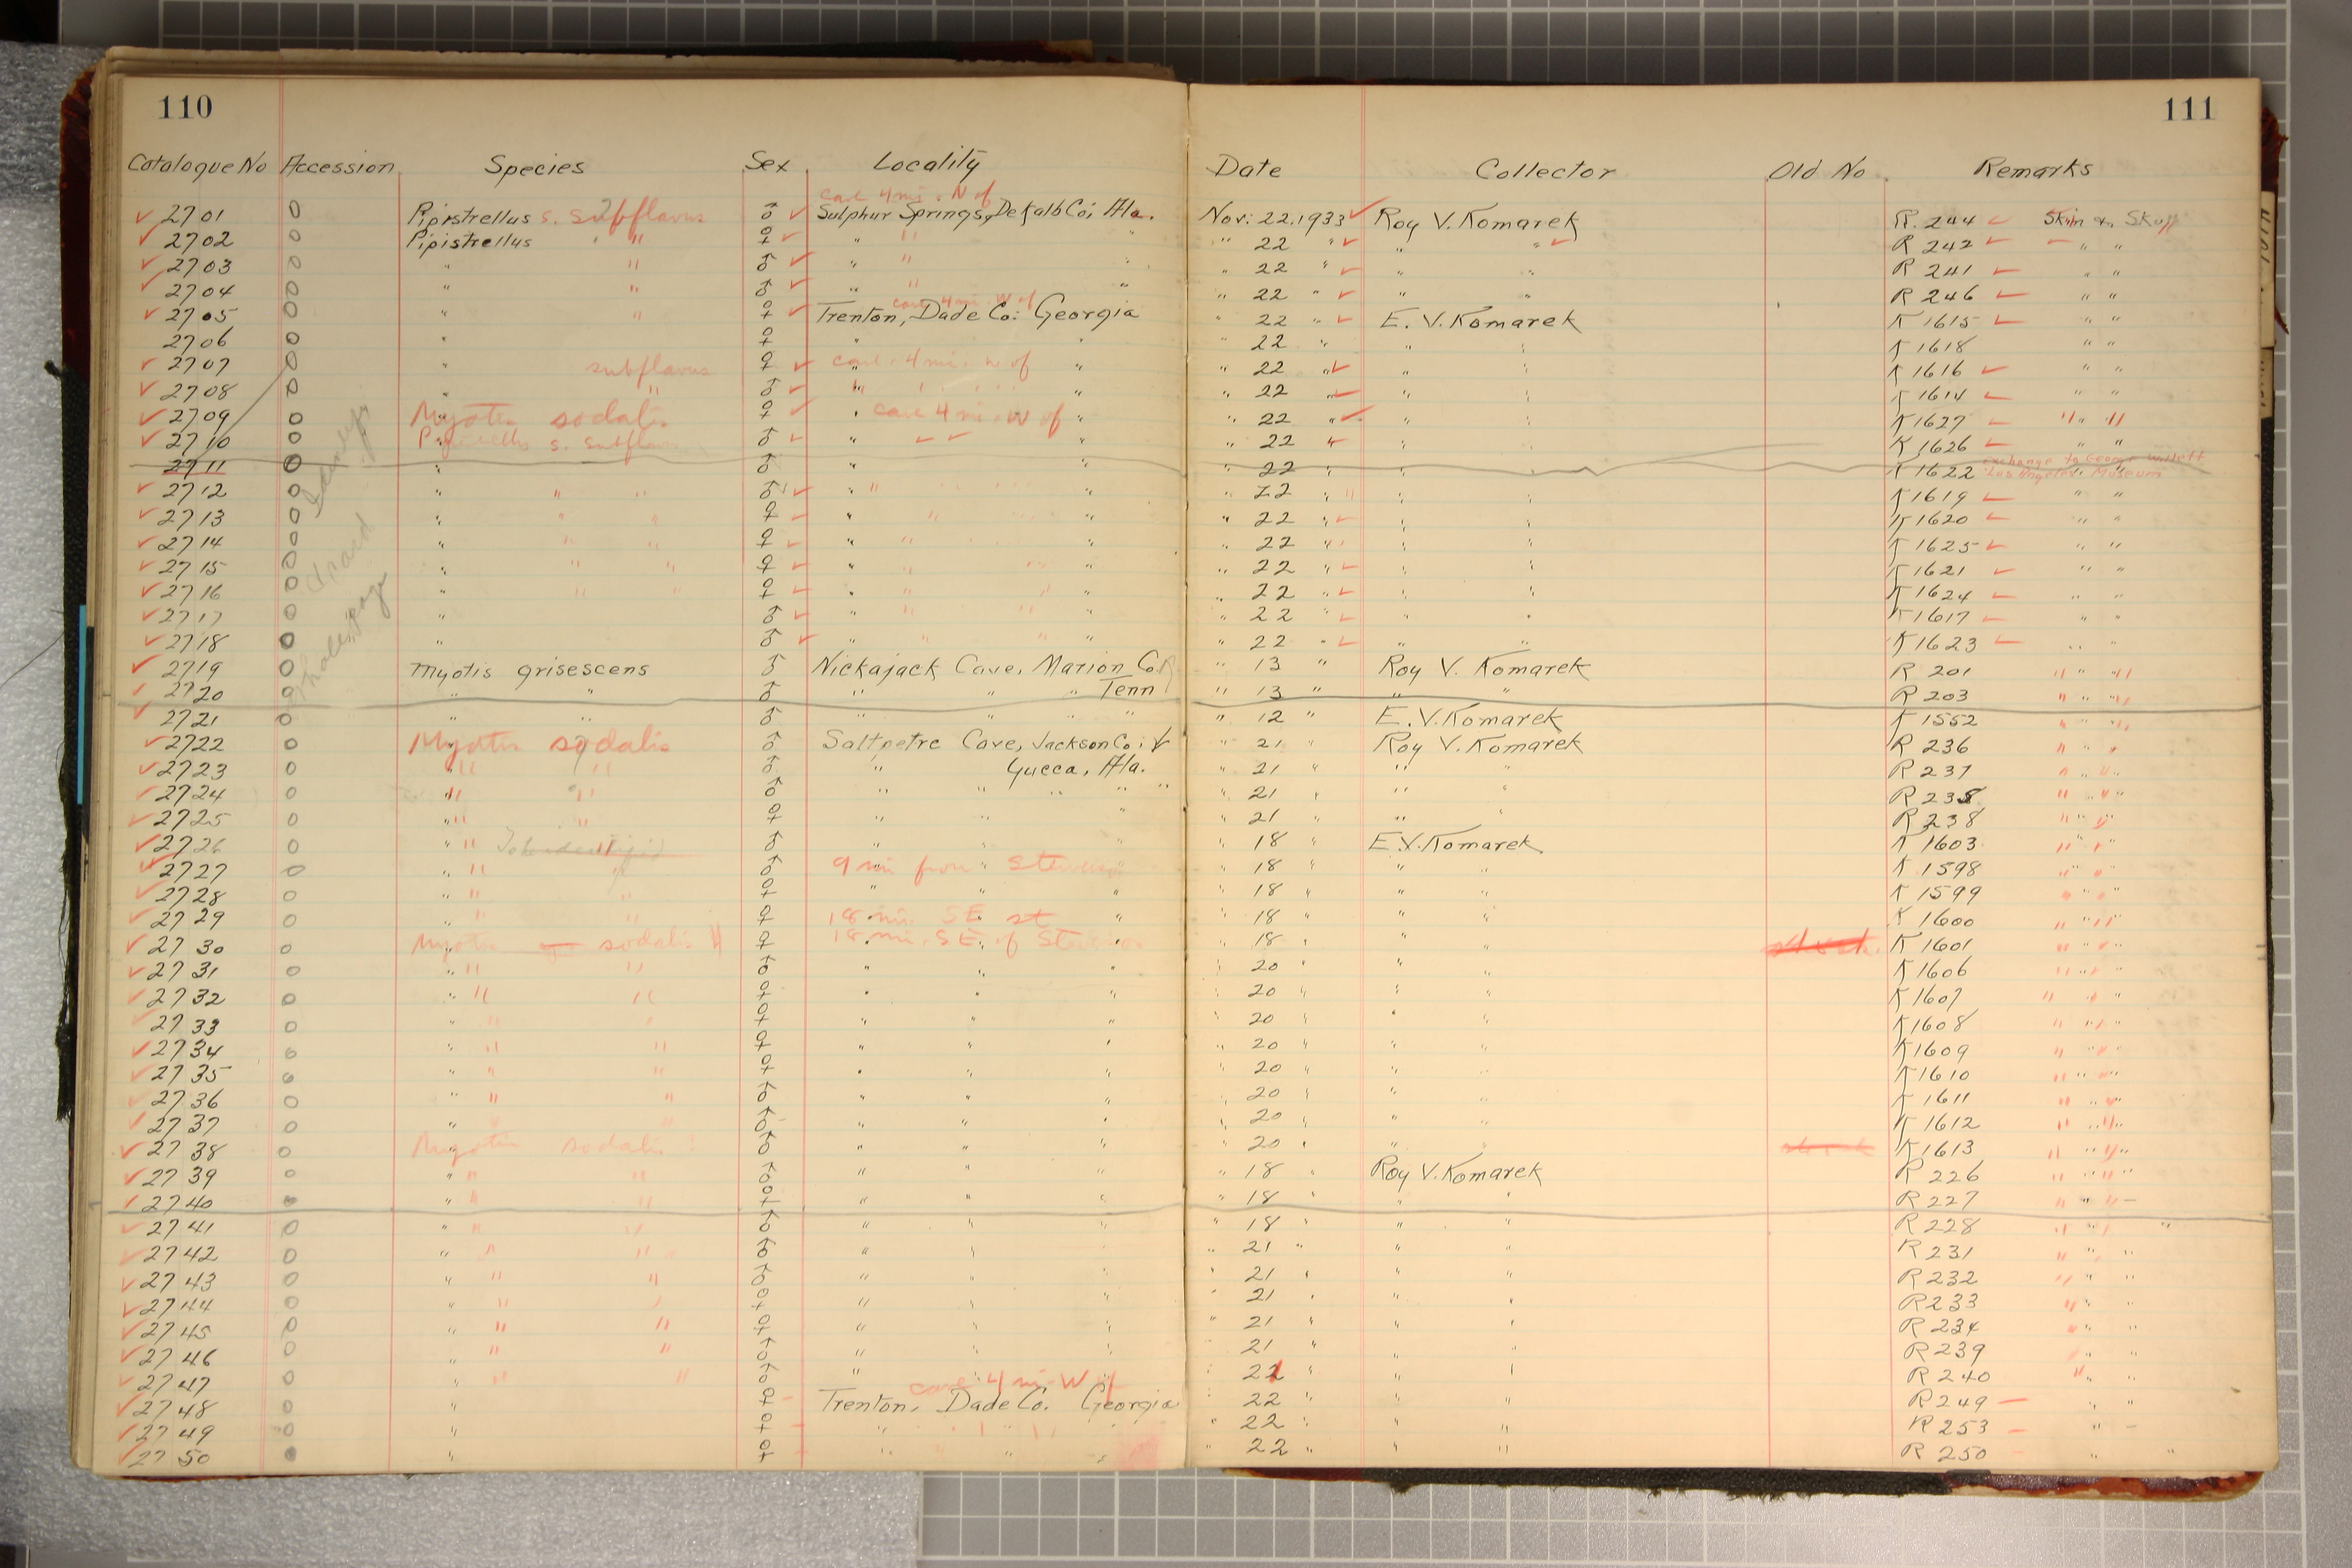 110
111
Catalogue No Accession Species Sex Locality Date Collector Old No Remarks
cave 4 mi. N of
2701 0 Pipistrellus s. subflavus ♂ Sulphur Springs, De Kalb Co; Ala. Nov: 22. 1933 Roy V. Komarek R. 244 Skin & Skull
2702 0 Pipistrellus " ♀ " " " 22 " " " R 242 " "
2703 0 " " ♂ " " " 22 " " " R 241 " "
2704 0 " " ♂ " " " 22 " " " R 246 " "
cave 4 mi. W of
2705 0 " " ♀ Trenton, Dade Co: Georgia " 22 " E. V. Komarek K 1615 " "
2706 0 " ♀ " " " 22 " " " K 1618 " "
2707 0 " subflavus ♀ cave 4 mi. W of " " 22 " " " K 1616 " "
2708 0 " " ♂ " " " 22 " " " K 1614 " "
2709 0 Myotis sodalis ♀ " cave 4 mi. W of " " 22 " " " K 1627 " "
2710 0 Pipistrellus s. subflavus ♂ " " " 22 " " " K 1626 " "
2711 0 " ♂ " " " 22 " " " K 1622 exchange to George Willett
Los Angeles Museum
2712 0 " " " ♂ " " " 22 " " " K 1619 " "
2713 0 " " " ♀ " " " 22 " " " K 1620 " "
2714 0 " " " ♀ " " " 22 " " " K 1625 " "
2715 0 " " " ♀ " " " 22 " " " K 1621 " "
2716 0 " " " ♀ " " " 22 " " " K 1624 " "
2717 0 " ♂ " " " 22 " " " K 1617 " "
2718 0 " ♂ " " " 22 " " " K 1623 " "
whole page
2719 0 Myotis grisescens ♂ Nickajack Cave, Marion Co. " 13 " Roy V. Komarek R 201 " "
2720 0 " " ♂ " " " Tenn " 13 " " " R 203 " "
2721 0 " " ♂ " " " " " 12 " E. V. Komarek K 1552 " "
2722 0 Myotis sodalis ♂ Saltpetre Cave, Jackson Co; " 21 " Roy V. Komarek R 236 " "
2723 0 " " ♂ " Yucca, Ala. " 21 " " " R 237 " "
2724 0 " " ♂ " " " " " 21 " " " R 235 " "
2725 0 " " ♀ " " " " 21 " " " R 238 " "
2726 0 " " ♂ " " " " 18 " E. V. Komarek K 1603 " "
2727 0 " ♂ 9 mi from Stevenson " 18 " " " K 1598 " "
2728 0 " " ♀ " " " " 18 " " " K 1599 " "
2729 0 " " ♀ 18 mi. SE st " " 18 " " " K 1600 " "
2730 0 Myotis sodalis ♀ 18 mi. SE. of Stevenson " 18 " " " K 1601 " "
2731 0 " " ♂ " " " " 20 " " " K 1606 " "
2732 0 " " ♀ " " " " 20 " " " K 1607 " "
2733 0 " " ♀ " " " " 20 " " " K 1608 " "
2734 0 " " ♀ " " " " 20 " " " K 1609 " "
2735 0 " " ♀ " " " " 20 " " " K 1610 " "
2736 0 " " ♂ " " " " 20 " " " K 1611 " "
2737 0 " " ♂ " " " " 20 " " " K 1612 " "
2738 0 Myotis sodalis ♂ " " " " 20 " " " K 1613 " "
2739 0 " " ♂ " " " " 18 " Roy V. Komarek R 226 " "
2740 0 " " ♀ " " " " 18 " " " R 227 " "
2741 0 " " ♂ " " " " 18 " " " R 228 " "
2742 0 " " ♂ " " " " 21 " " " R 231 " "
2743 0 " " ♂ " " " " 21 " " " R 232 " "
2744 0 " " ♀ " " " " 21 " " " R 233 " "
2745 0 " " ♀ " " " " 21 " " " R 234 " "
2746 0 " " ♂ " " " " 21 " " " R 239 " "
2747 0 " " ♂ " " " " 21 " " " R 240 " "
cave 4 mi W of
2748 0 " ♀ Trenton, Dade Co. Georgia " 22 " " " R 249 " "
2749 0 " ♀ " " " " 22 " " " R 253 "
2750 0 " ♀ " " " " 22 " " " R 250 " "